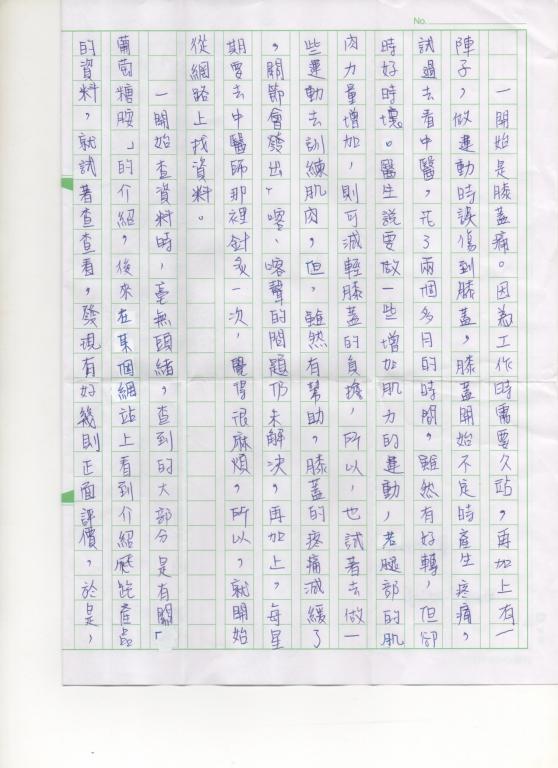 No.
一開始是膝蓋痛。因為工作時需要久站,再加上有一
陣子,做運動時誤傷到膝蓋,膝蓋開始不定時產生疼痛,
試過去看中醫,花了兩個多月的時間,雖然有好轉,但卻
時好時壞。醫生說要做一些增加肌力的運動,若腿部的肌
肉力量增加,則可減輕膝蓋的負擔,所以,也試著去做一
些運動去訓練肌肉,但,雖然有幫助,膝蓋的疼痛減緩了
,關節會發出「喀、喀聲的問題仍未解決,再加上,每星
期要去中醫師那裡針灸一次,覺得很麻煩,所以,就開始
從網路上找資料。
一開始查資料時,毫無頭緒,查到的大部分是有關「
葡萄糖胺」的介紹,後來在某個網站上看到介紹產品
的資料,就試著查查看,發現有好幾則正面評價,於是,